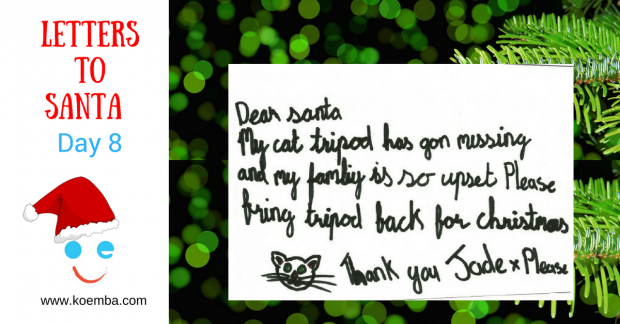 LETTERS
TO
SANTA
Day 8
www.koemba.com
Dear santa
My cat tripod has gon missing
and my fambiy is so upset Please
bring tripod back for christmas
Thank you Jade x Please